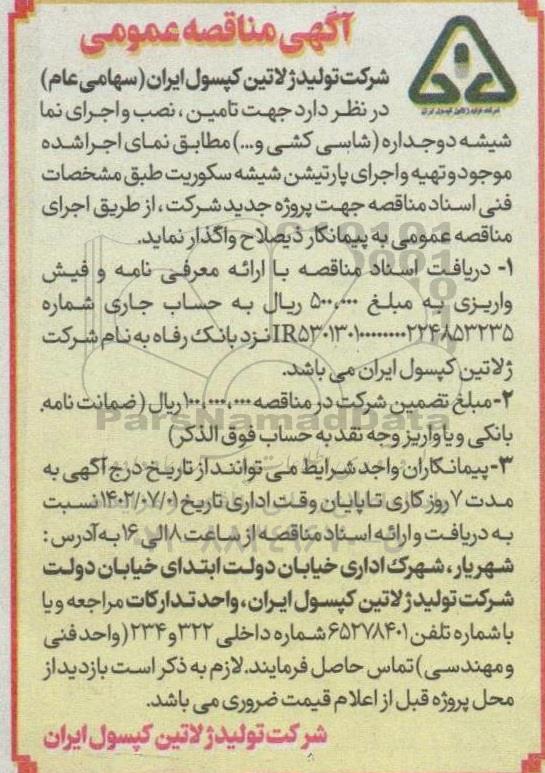 آگهی مناقصه عمومی
شرکت تولید ژلاتین کپسول ایران
شرکت تولید ژلاتین کپسول ایران (سهامی عام)
در نظر دارد جهت تامین ، نصب و اجرای نما
شیشه دوجداره (شاسی کشی و...) مطابق نمای اجرا شده
موجود و تهیه و اجرای پارتیشن شیشه سکوریت طبق مشخصات
فنی اسناد مناقصه جهت پروژه جدید شرکت ، از طریق اجرای
مناقصه عمومی به پیمانکار ذیصلاح واگذار نماید.
۱- دریافت اسناد مناقصه با ارائه معرفی نامه و فیش
واریزی به مبلغ ۵۰۰,۰۰۰ ریال به حساب جاری شماره
نزد بانک رفاه به نام شرکت
ژلاتین کپسول ایران می باشد.
۲-مبلغ تضمین شرکت در مناقصه ۱۰۰,۰۰۰,۰۰۰ ریال ( ضمانت نامه
بانکی و یا واریز وجه نقد به حساب فوق الذکر)
۳-پیمانکاران واجد شرایط می توانند از تاریخ درج آگهی به
مدت ۷ روز کاری تا پایان وقت اداری تاریخ ۱۴۰۲/۰۷/۰۱ نسبت
به دریافت و ارائه اسناد مناقصه از ساعت ۸ الی ۱۶ به آدرس :
شهریار ، شهرک اداری خیابان دولت ابتدای خیابان دولت
شرکت تولید ژلاتین کپسول ایران ، واحد تدارکات مراجعه و یا
با شماره تلفن ۶۵۲۷۸۴۰۱ شماره داخلی ۳۲۲ و ۲۳۴ (واحد فنی
و مهندسی) تماس حاصل فرمایند. لازم به ذکر است بازدید از
محل پروژه قبل از اعلام قیمت ضروری می باشد.
شرکت تولید ژلاتین کپسول ایران
ParsNamadData